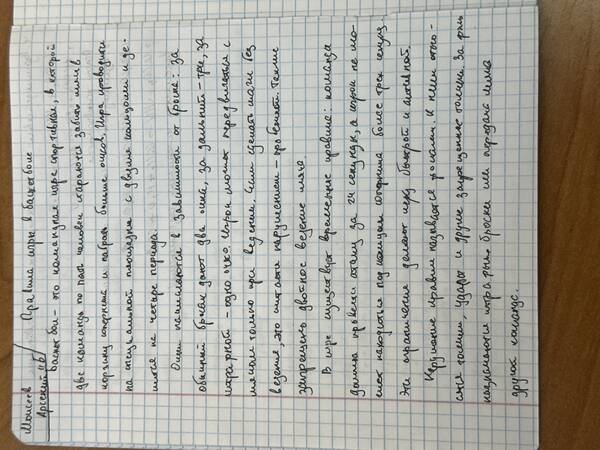 Моисеев
Арсений 11Б
Правила игры в баскетбол
Баскетбол - это командная игра спортивная, в которой
две команды по пять человек стараются забить мяч в
корзину соперника и набрать больше очков. Игра проводится
на специальной площадке с двумя кольцами и де-
лится на четыре периода
Очки начисляются в зависимости от броска: за
обычный бросок дают два очка, за дальний - три, за
штрафной - одно очко. Игрок может передвигаться с
мячом только при ведении. Если сделать шаги без
ведения, это считается нарушением - пробежкой. Также
запрещено двойное ведение мяча
В игре существуют временные правила: команда
должна провести атаку за 24 секунды, а игрок не мо-
жет находиться под кольцом соперника более трёх секунд.
Эти ограничения делают игру быстрой и активной.
Нарушение правил называется фолами. К ним отно-
сятся толчки, удары и другие запрещённые приёмы. За фолы
назначаются штрафные броски или передача мяча
другой команде.